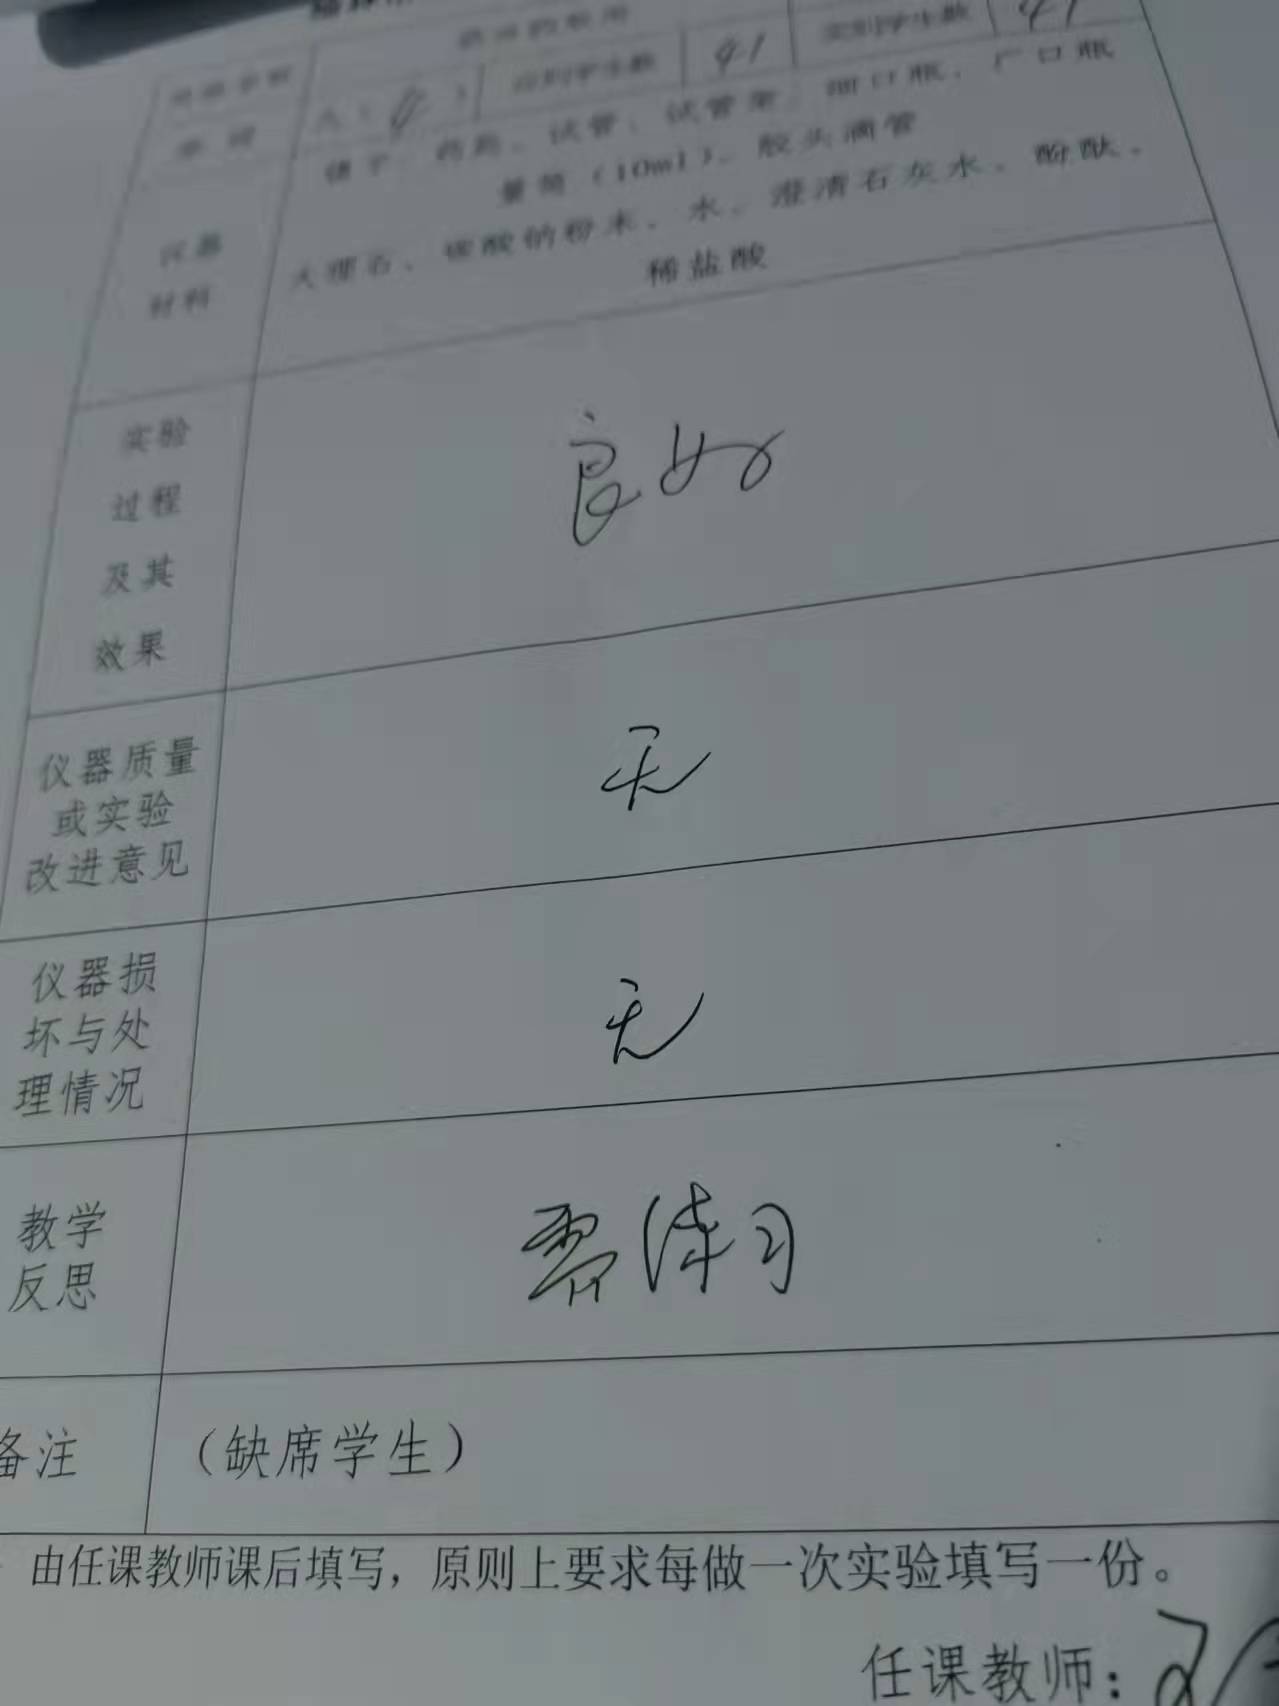 药品的取用
应到学生数 41 实到学生数 41
镊子、药匙、试管、试管架、细口瓶、广口瓶
量筒（10ml）、胶头滴管
仪器
材料
大理石、碳酸钠粉末、水、澄清石灰水、酚酞、
稀盐酸
实验
过程
及其
效果
良好
仪器质量
或实验
改进意见
无
仪器损
坏与处
理情况
无
教学
反思
需练习
备注
（缺席学生）
由任课教师课后填写，原则上要求每做一次实验填写一份。
任课教师：